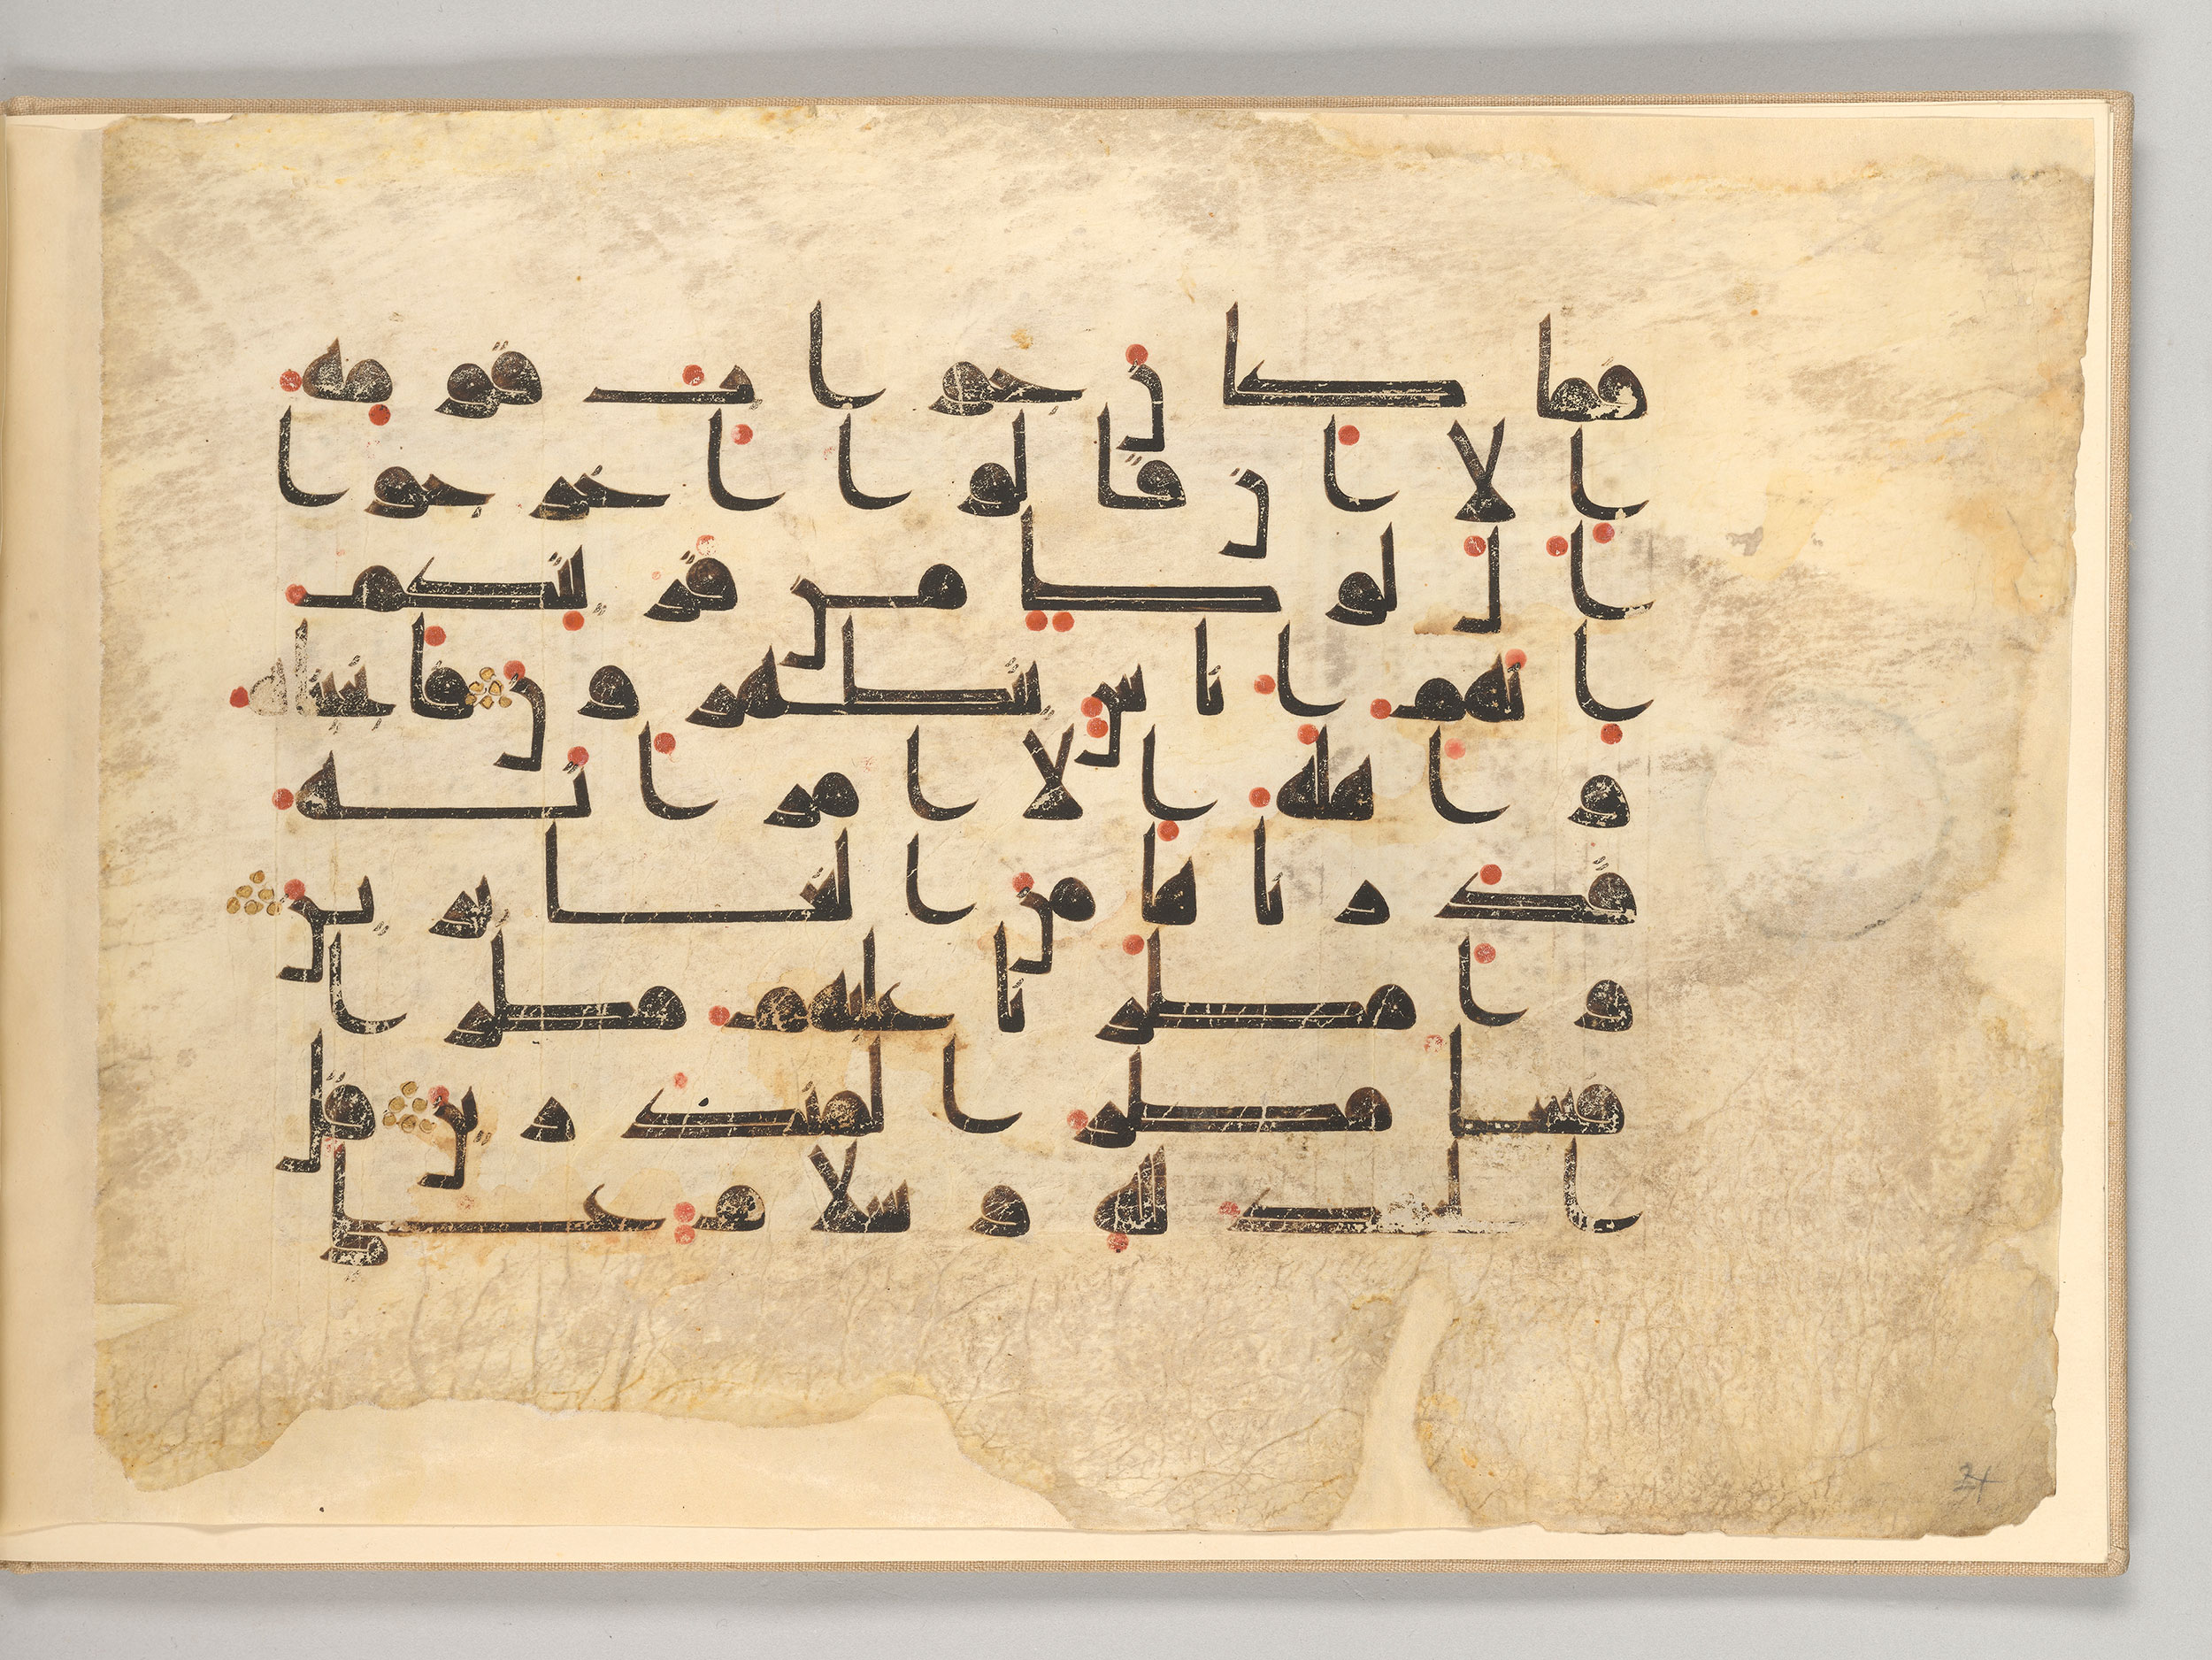 فما كان جواب قومه
الا ان قالوا اخرجوا
ال لوط من قريتكم
انهم اناس يتطهرون فانجيناه
واهله الا امراته
قدرناها من الغابرين
وامطرنا عليهم مطرا
فسا مطر المنذرين قل
الحمد لله وسلام على
24